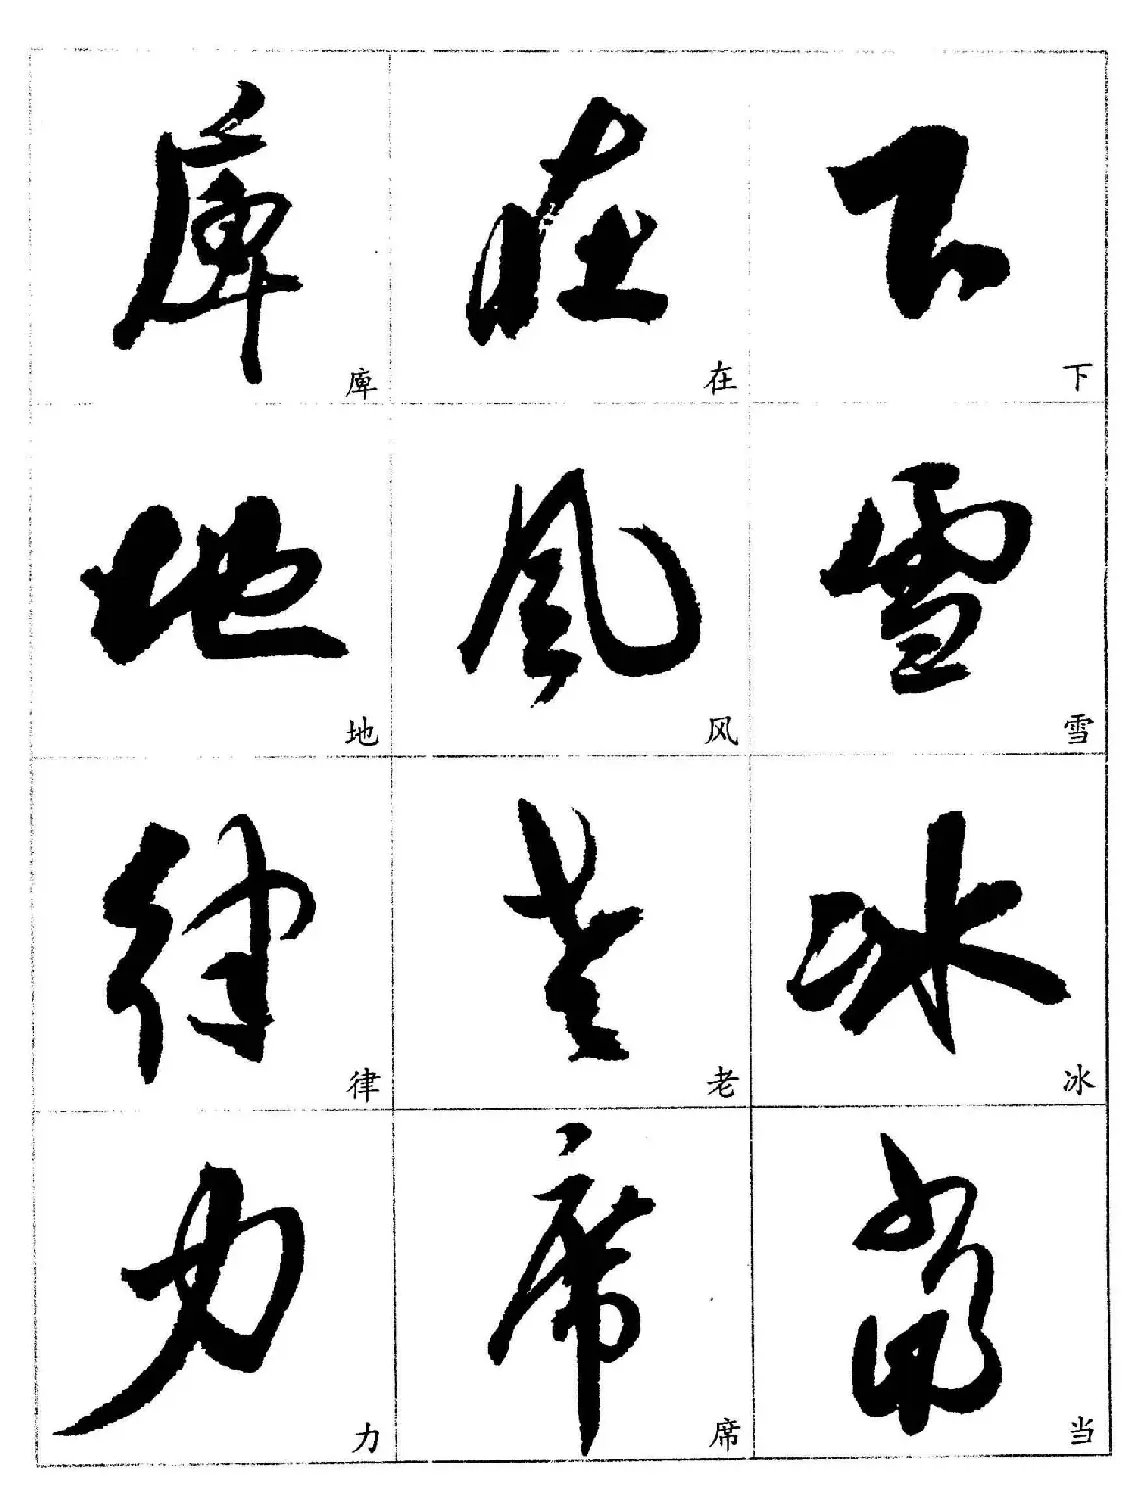 下
下
雪
雪
冰
冰
當
当
在
在
風
风
老
老
席
席
庳
庳
地
地
律
律
力
力